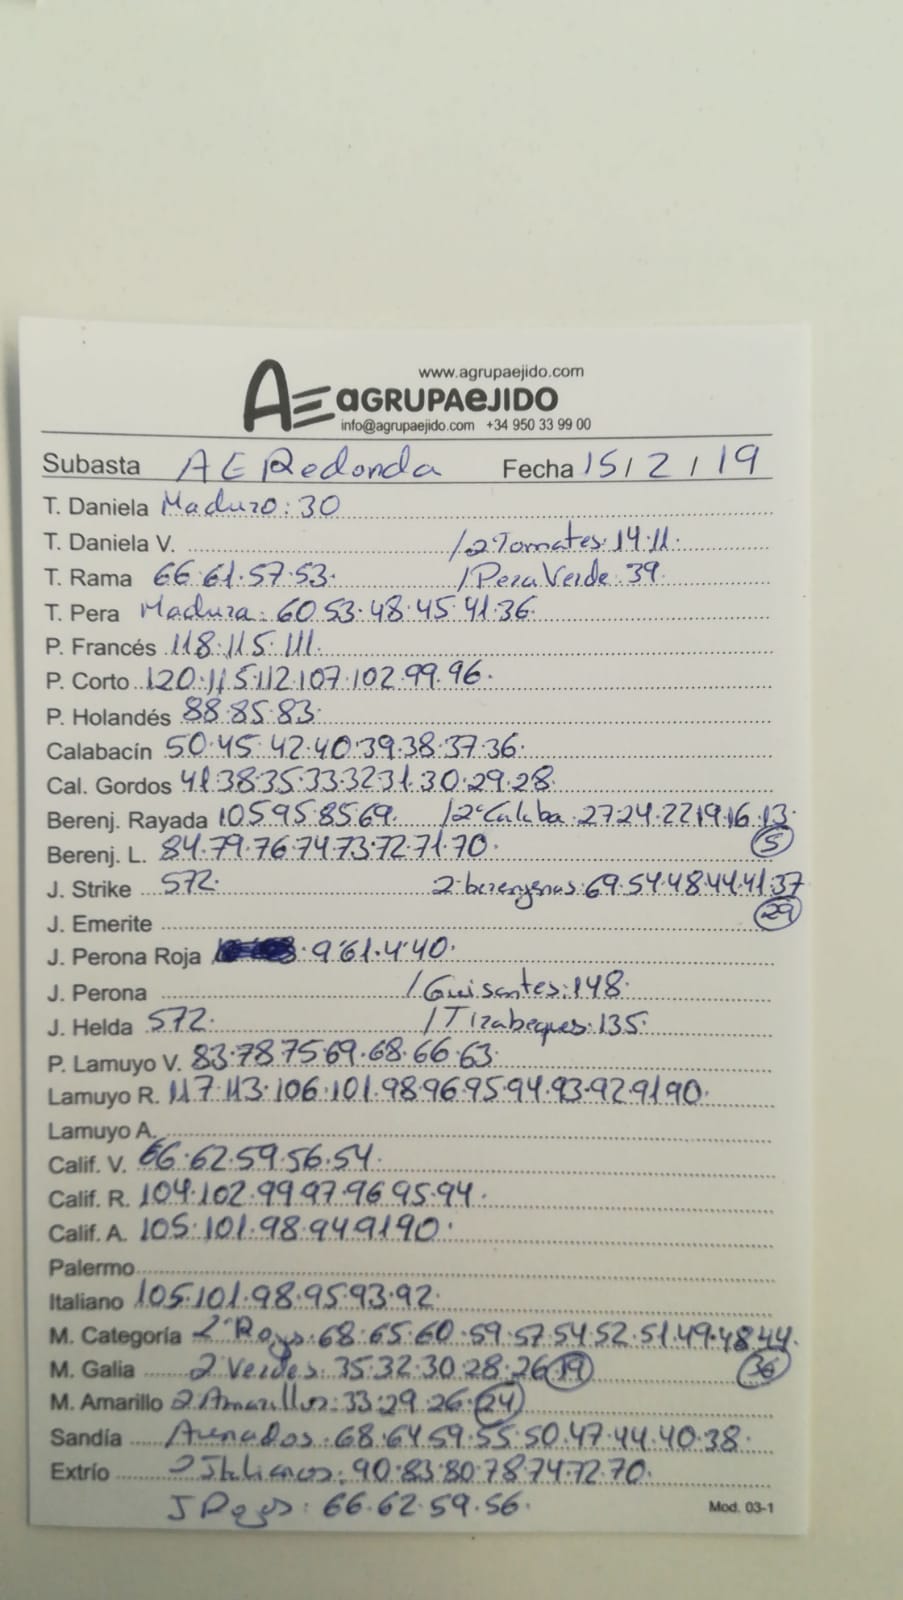 www.agrupaejido.com
AE aGRUPAeJIDO
info@agrupaejido.com +34 950 33 99 00
Subasta AE Redonda Fecha 15/2/19
T. Daniela Maduro: 30
T. Daniela V. /2 Tomates: 14·11·
T. Rama 66·61·57·53· /Pera Verde: 39·
T. Pera Madura: 60·53·48·45·41·36·
P. Francés 118·115·111·
P. Corto 120·115·112·107·102·99·96·
P. Holandés 88·85·83·
Calabacín 50·45·42·40·39·38·37·36·
Cal. Gordos 41·38·35·33·32·31·30·29·28
Berenj. Rayada 105·95·85·69· /2ª Calaba·27·24·22·19·16·13·
Berenj. L. 84·79·76·74·73·72·71·70· 5
J. Strike 572· 2·berengenas: 69·54·48·44·41·37
J. Emerite 29
J. Perona Roja ·9'61·4'40·
J. Perona /Guisantes: 148·
J. Helda 572· /Tirabeques: 135·
P. Lamuyo V. 83·78·75·69·68·66·63·
Lamuyo R. 117·113·106·101·98·96·95·94·93·92·91·90·
Lamuyo A.
Calif. V. 66·62·59·56·54·
Calif. R. 104·102·99·97·96·95·94·
Calif. A. 105·101·98·94·91·90·
Palermo
Italiano 105·101·98·95·93·92·
M. Categoría 2ª Rojos: 68·65·60·59·57·54·52·51·49·48·44·
M. Galia 2 Verdes: 35·32·30·28·26 19 36
M. Amarillo 2 Amarillos: 33·29·26·24
Sandía Asurados: 68·64·59·55·50·47·44·40·38·
Extrío 2 Italianos: 90·83·80·78·74·72·70·
66·62·59·56·
Mod. 03-1